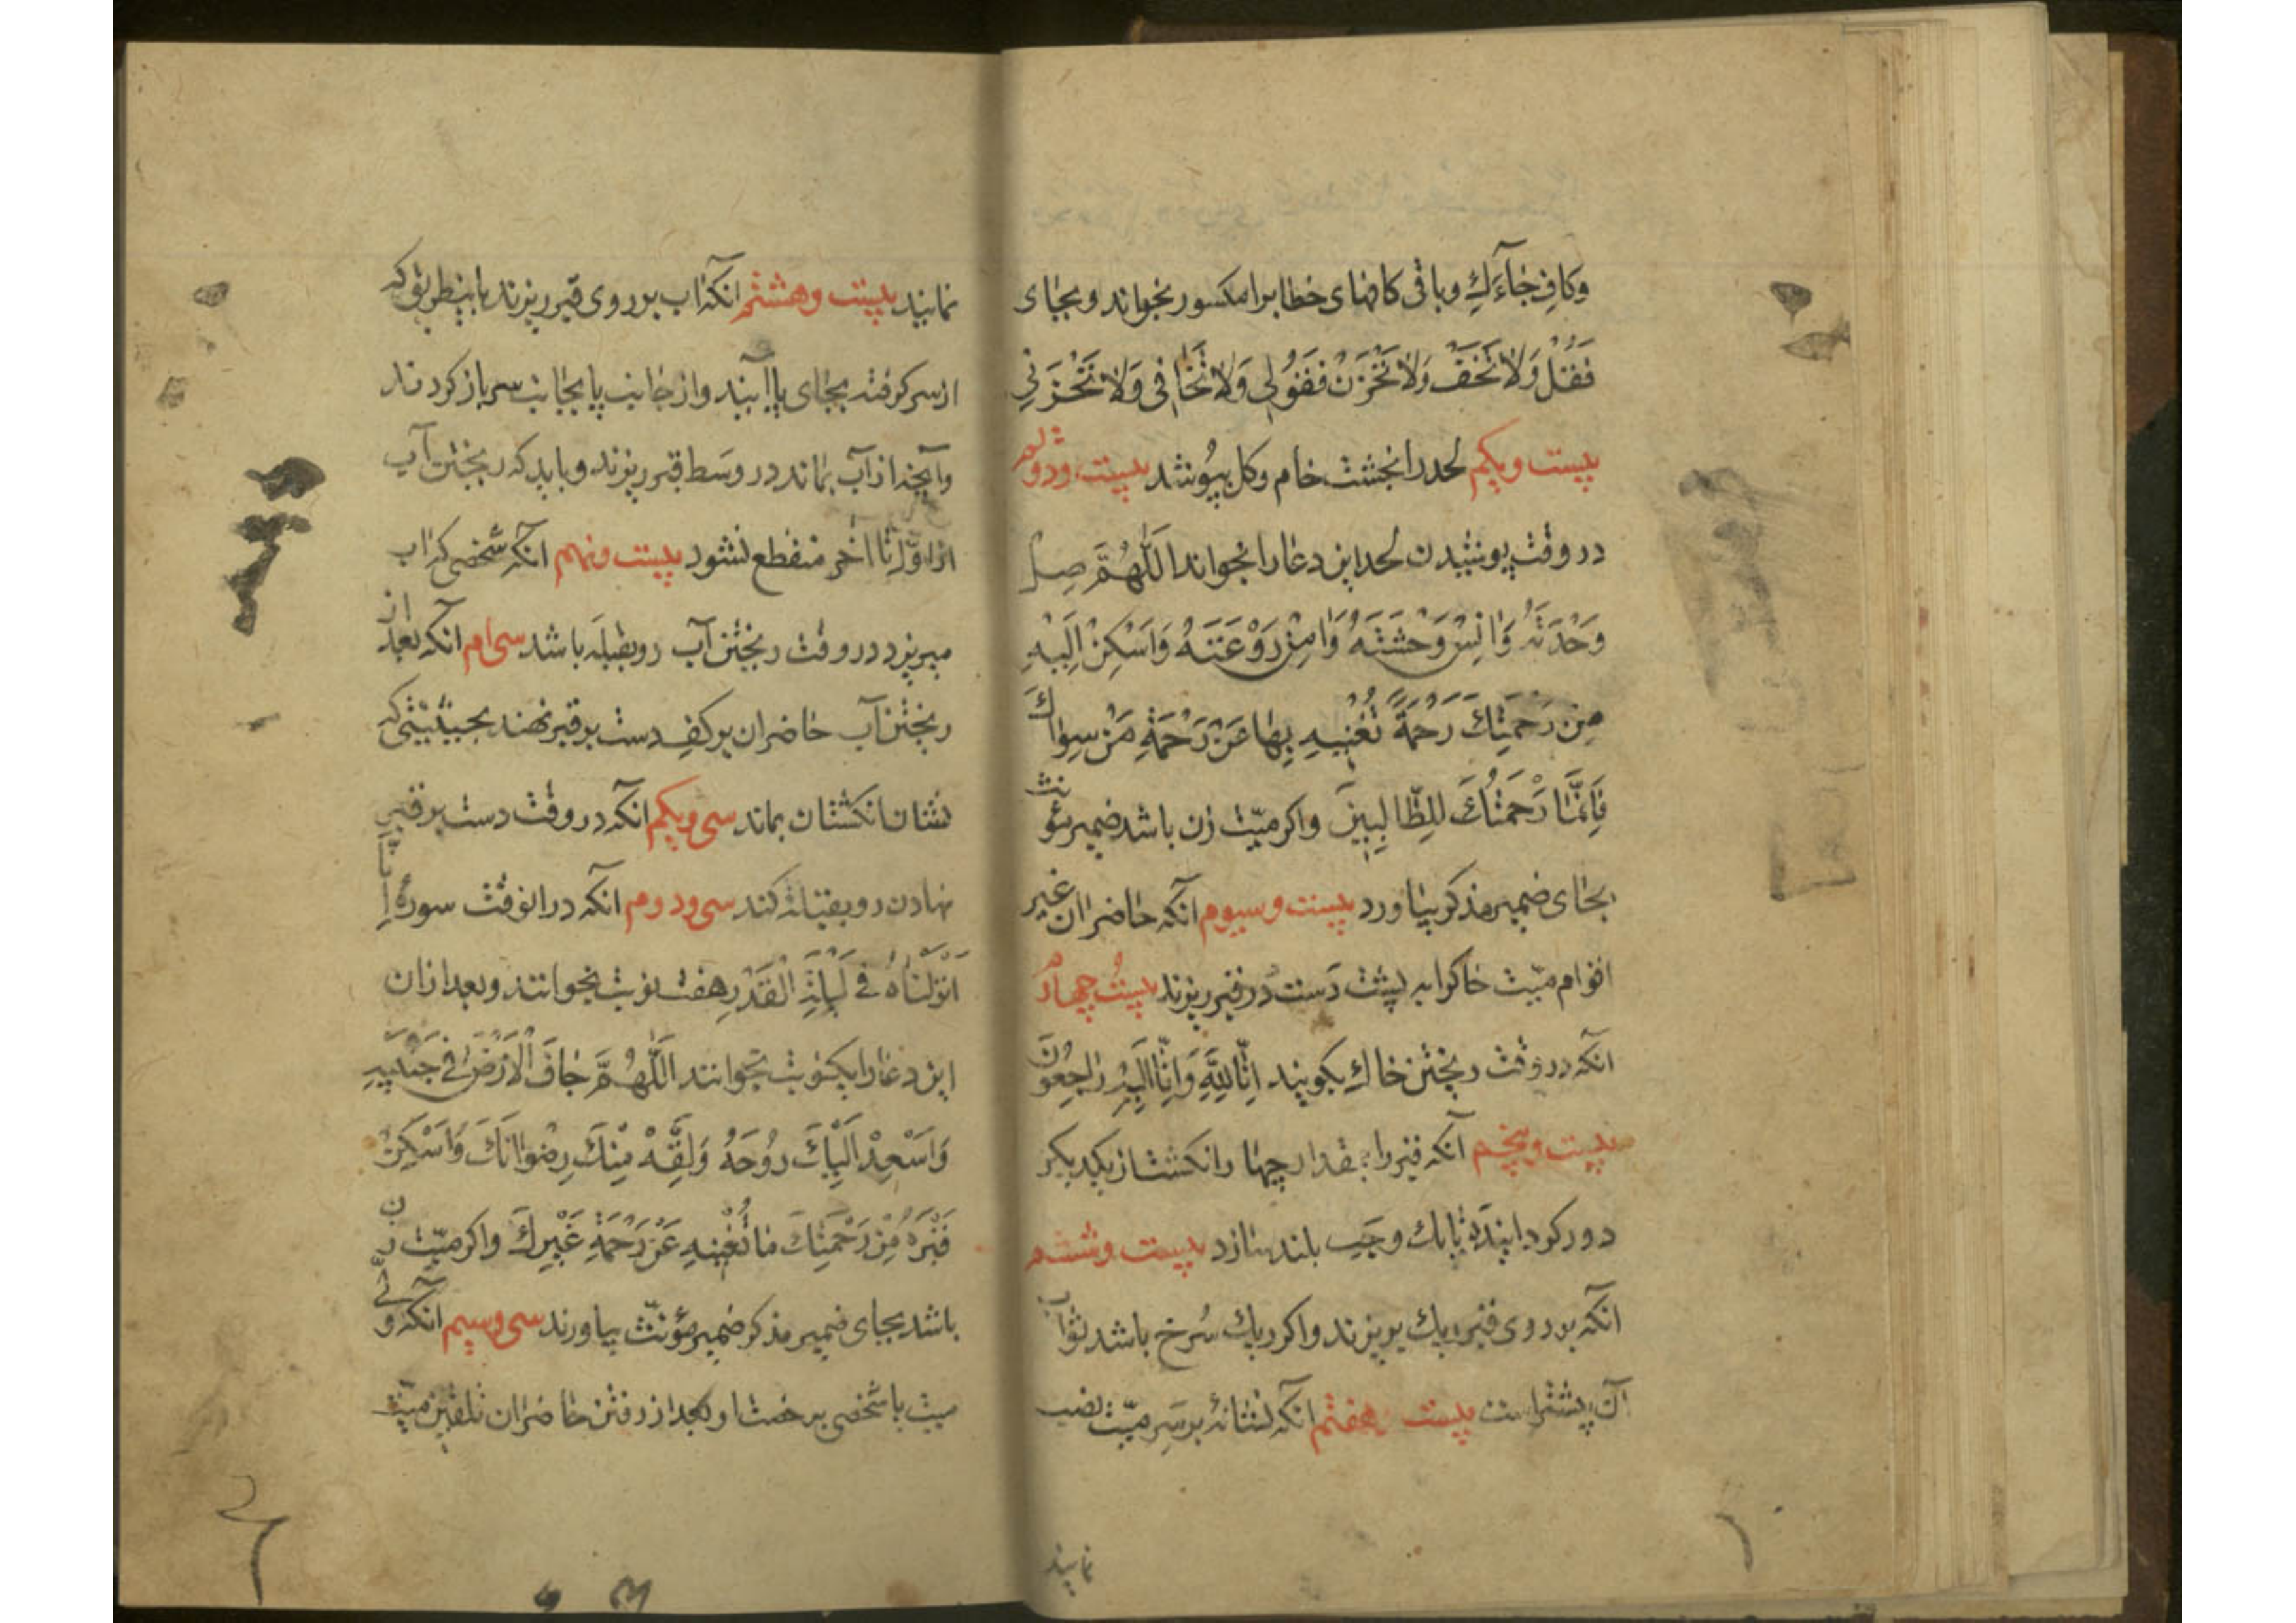 وکاف جٰاءَكِ وباقی کافهای خطابرا مکسور بخواند و بجای
فَقُلْ وَلاٰ تَخَفْ وَلاٰ تَحْزَنْ فَقُولِی وَلاٰ تَخٰافِی وَلاٰ تَحْزَنِی
بیست ویکم لحد را بخشت خام وکل بپوشد بیست ودوم
در وقت پوشیدن لحد این دعا را بخواند اَللّٰهُمَّ صِلْ
وَحْدَتَهُ وَاٰنِسْ وَحْشَتَهُ وَاٰمِنْ رَوْعَتَهُ وَاَسْکِنْ اِلَیْهِ
مِنْ رَحْمَتِكَ رَحْمَةً تُغْنِیهِ بِهٰا عَنْ رَحْمَةِ مَنْ سِوٰاكَ
فَاِنَّمٰا رَحْمَتُكَ لِلطّٰالِبِینَ واکر میّت زن باشد ضمیر مؤنث
بجای ضمیر مذکر بیاورد بیست وسیوم آنکه حاضران غیر
اقوام میّت خاکرا به پشت دست در قبر ریزند بیست چهارم
آنکه در وقت ریختن خاك بکویند اِنّٰا لِلّٰهِ وَاِنّٰا اِلَیْهِ رٰاجِعُونَ
بیست وپنجم آنکه قبر را بمقدار چهار انکشت از یکدیکر
دور کرده اینده تا یك وجب بلند سازد بیست وششم
آنکه بر روی قبر ریك بریزند واکر ریك سُرخ باشد ثواب
آن بیشتر است بیست هفتم آنکه نشانهٔ بر سر میّت نصب
نمایند
نمایند بیست وهشتم آنکه آب بر روی قبر ریزند باینطریق که
از سر کرفته بجای پا آیند واز جانب پا بجانب سر باز کردند
وآنچه از آب بماند در وسط قبر ریزند و باید که ریختن آب
از اوّل تا آخر منقطع نشود بیست ونهم آنکه شخصی که آب
میریزد در وقت ریختن آب رو بقبله باشد سی ام آنکه بعد از
ریختن آب حاضران بر کف دست بر قبر نهند بحیثیتی که
نشان انکشتان بماند سی ویکم آنکه در وقت دست بر قبر
نهادن رو بقبله کند سی ودوم آنکه در آنوقت سورهٔ اِنّٰا
اَنْزَلْنٰاهُ فِی لَیْلَةِ الْقَدْرِ هفت نوبت بخوانند وبعد از آن
این دعا را یکنوبت بخوانند اَللّٰهُمَّ جٰافِ الْاَرْضَ عَنْ جَنْبَیْهِ
وَاَسْعِدْ اِلَیْكَ رُوحَهُ وَلَقِّهْ مِنْكَ رِضْوٰانَكَ وَاَسْکِنْ
قَبْرَهُ مِنْ رَحْمَتِكَ مٰا تُغْنِیهِ عَنْ رَحْمَةِ غَیْرِكَ واکر میّت زن
باشد بجای ضمیر مذکر ضمیر مؤنّث بیاورند سی وسیم آنکه ولی
میت با شخصی برخصت او بعد از رفتن حاضران تلقین میّت